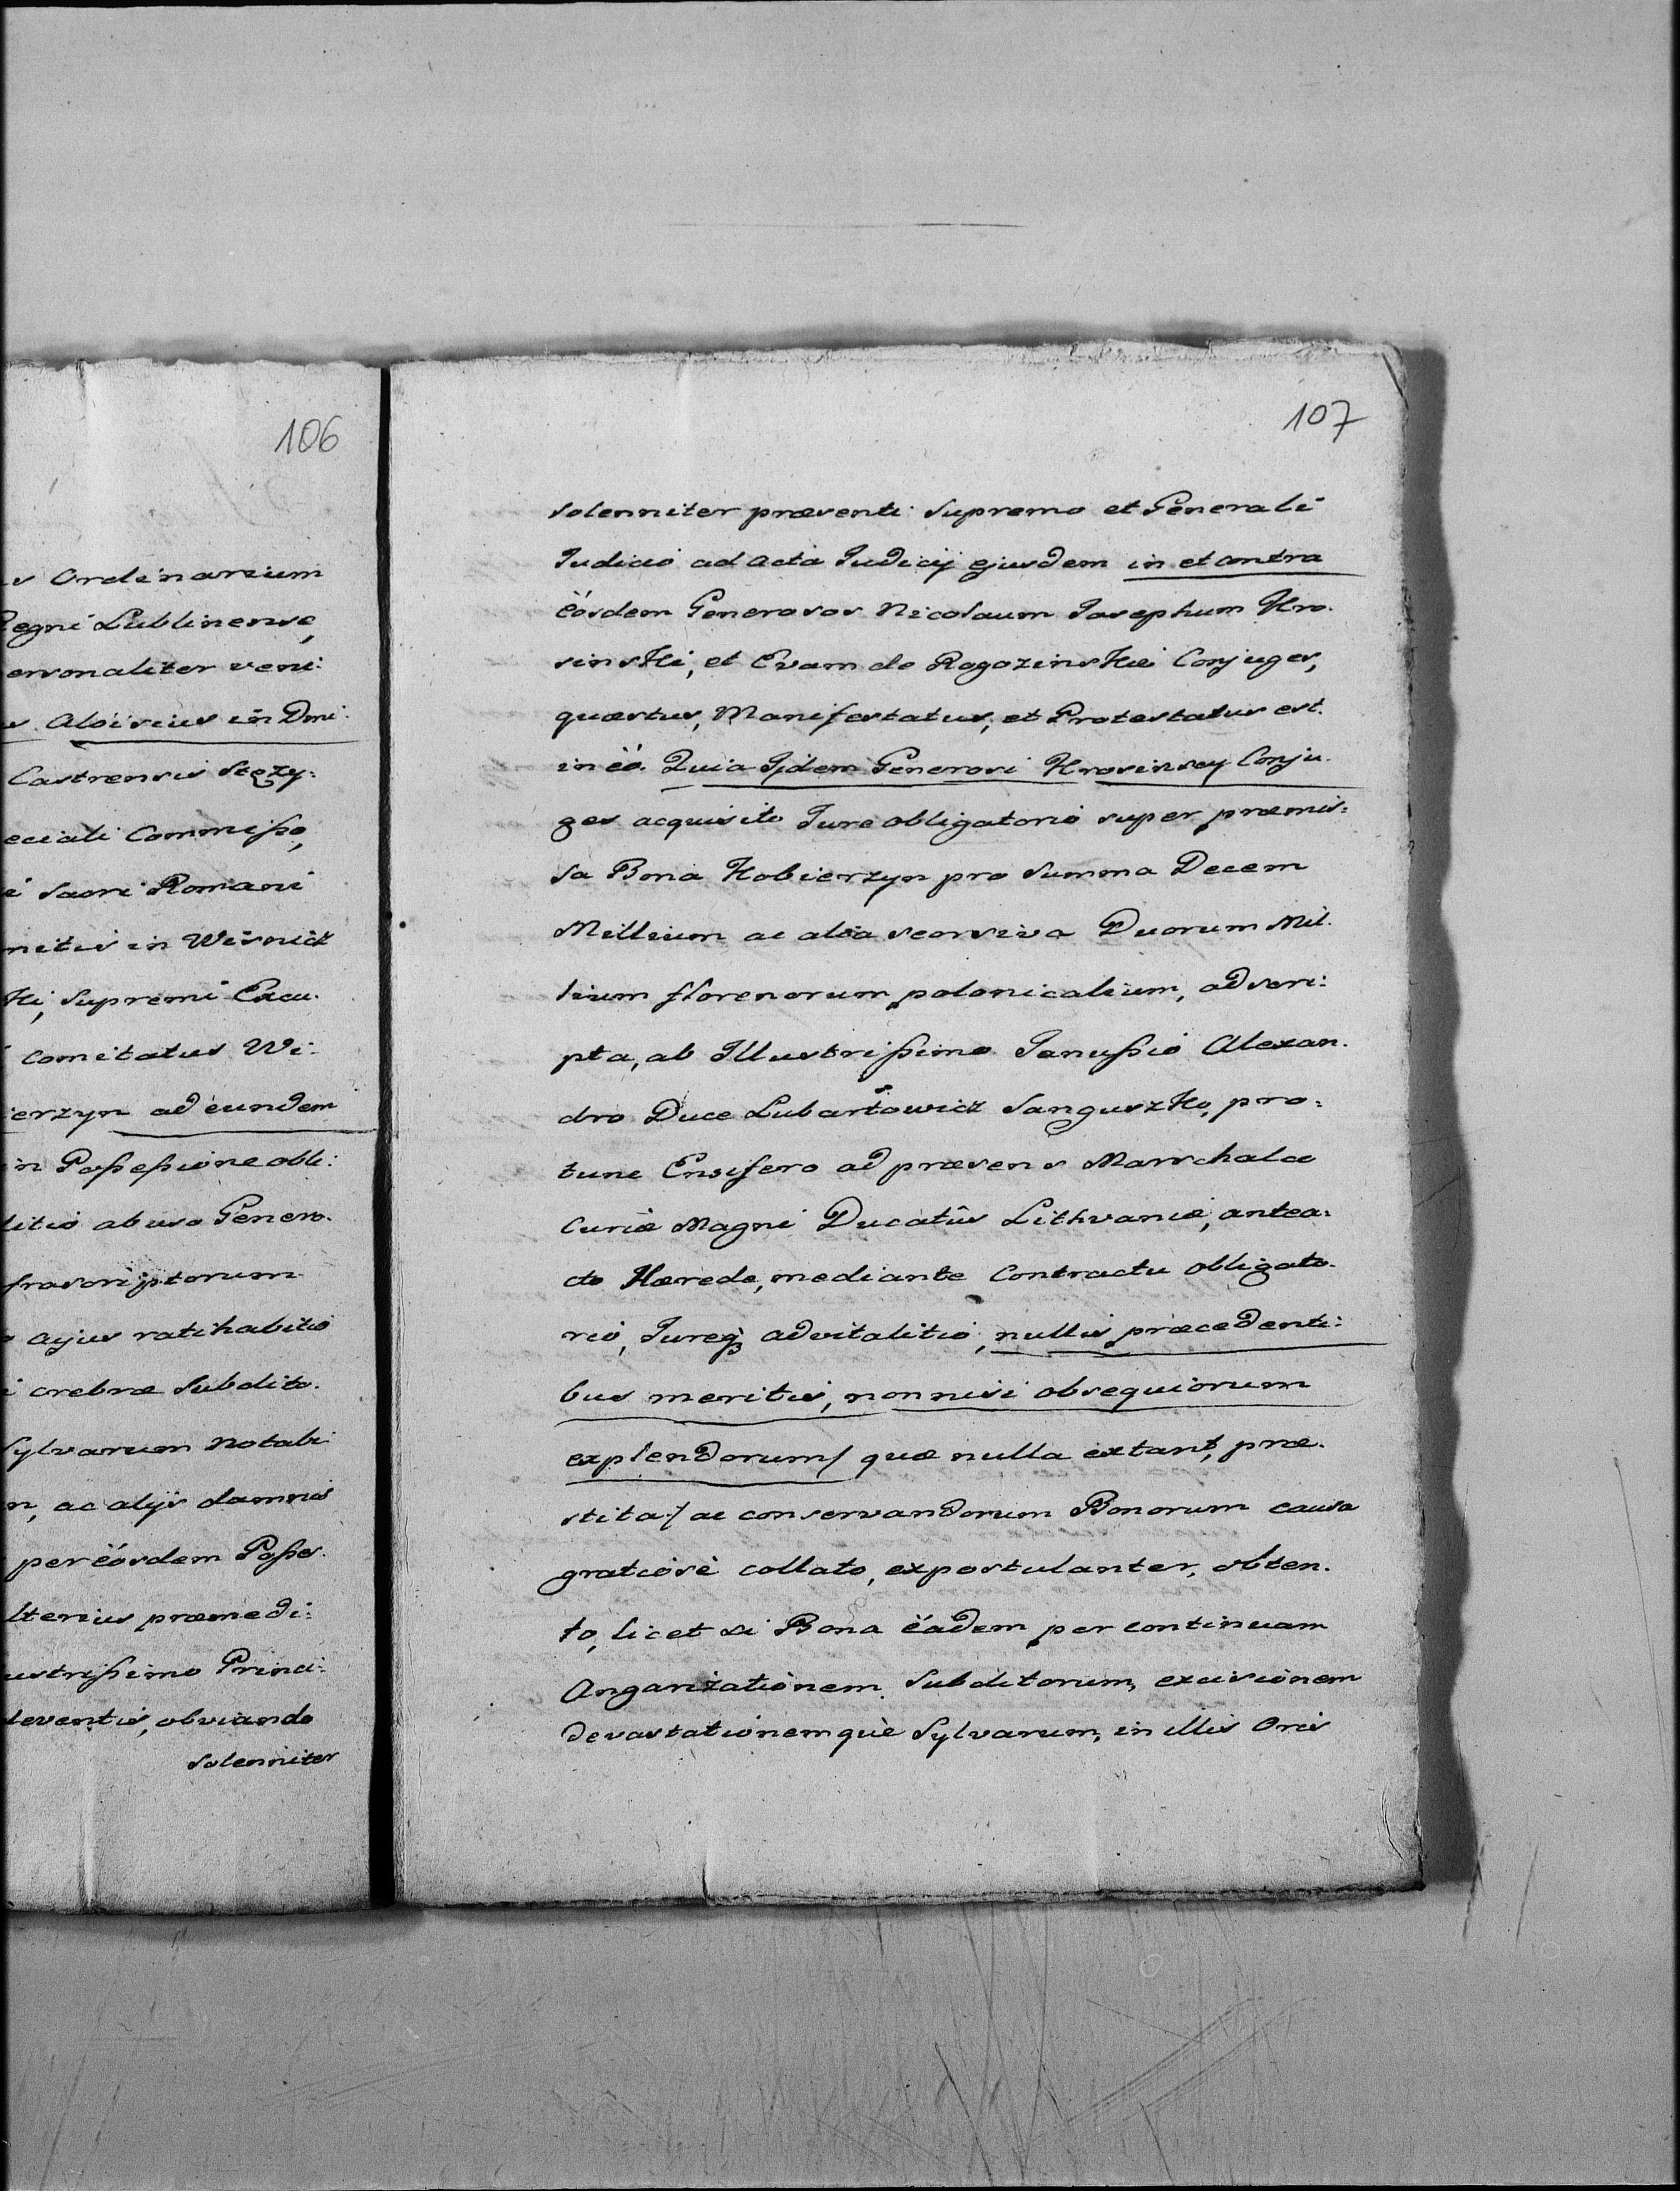 106
s Ordinarium
Regni Lublinense,
ersonaliter veni:
s Aloisius in Dmi:
Castrensis Stęzy:
eciali Commißo,
i Sacri Romani
mitis in Wisnicz
Ki, Supremi Excu.
Comitatus Wi:
ierzyn ad eundem
in Poßeßione obli:
litio abuso Genero.
frascriptorum
cujus ratihabitio
i crebræ Subdito.
Sylvarum notabi
n, ac alijs damnis
per eósdem Poßes.
lterius præmedi:
ustrißimo Princi:
leventis, obviando
Solenniter
107
solenniter præsenti Supremo et Generali
Iudicio ad acta Iudicij ejusdem in et contra
eósdem Generosos Nicolaum Iosephum Kro.
sinsKi, et Evam de RogozinsKie Conjuges,
quæstus, Manifestatus, et Protestatus est.
in eó. Quia Ijdem Generosi Krosinscy Conju.
ges acquisito Iure obligatorio super præmis:
sa Bona Kobierzyn pro Summa Decem
Millium ac alia seorsiva Duorum Mil.
lium florenorum polonicalium, adscri:
pta, ab Illustrißimo Janußio Alexan.
dro Duce Lubartowicz SanguszKo, pro:
tunc Ensifero ad præsens Marschalco
Curiæ Magni Ducatûs Lithvaniæ, antea:
cto Hærede, mediante Contractu obligato.
rio, Iureq3 advitalitio, nullis præcedenti:
bus meritis, non nisi obsequiorum
explendorum/ quæ nulla extant, præ.
stita/ ac conservandorum Bonorum causa
gratiosè collato, expostulanter, obten.
to, licet si Bona eádem per continuam
Angarizationem Subditorum, excisionem
devastationemquè Sylvarum, in illis Oris